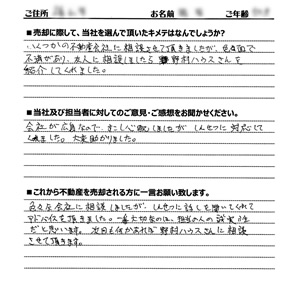 ご住所 お名前 ご年齢
■売却に際して、当社を選んで頂いたキメテはなんでしょうか?
いくつかの不動産会社に相談させて頂きましたが、色々面で
不満があり、友人に相談しましたら野村ハウスさんを
紹介してくれました。
■当社及び担当者に対してのご意見・ご感想をお聞かせください。
会社が広島なので、すこし心配しましたが しんせつに対応して
くれました。大変助かりました。
■これから不動産を売却される方に一言お願い致します。
色々な会社に相談しましたが、しんせつに話しを聞いてくれて
アドバイスを頂きました。一番大切なのは、担当の人の誠実性
だと思います。次回も何かあれば野村ハウスさんに相談
させて頂きます。